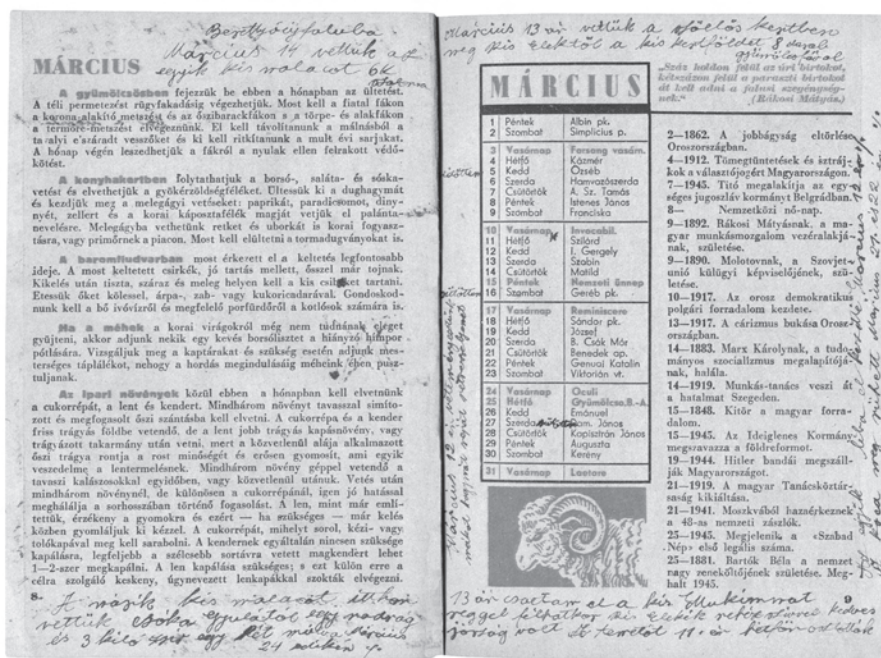 Berettyóújfaluba
Március 14 vettük az
egyik kis malacot 6k
MÁRCIUS
A gyümölcsösben fejezzük be ebben a hónapban az ültetést.
A téli permetezést rügyfakadásig végezhetjük. Most kell a fiatal fákon
a korona-alakító metszést és az őszibarackfákon s a törpe- és alakfákon
a termőre-metszést elvégeznünk. El kell távolítanunk a málnásból a
tavalyi elszáradt vesszőket és ki kell ritkítanunk a mult évi sarjakat.
A hónap végén leszedhetjük a fákról a nyulak ellen felrakott védő-
kötést.
A konyhakertben folytathatjuk a borsó-, saláta- és sóska-
vetést és elvethetjük a gyökérzöldségféléket. Ültessük ki a dughagymát
és kezdjük meg a melegágyi vetéseket: paprikát, paradicsomot, diny-
nyét, zellert és a korai káposztafélék magját vetjük el palánta-
nevelésre. Melegágyba vethetünk retket és uborkát is korai fogyasz-
tásra, vagy primőrnek a piacon. Most kell elültetni a tormadugványokat is.
A baromfiudvarban most érkezett el a keltetés legfontosabb
ideje. A most keltetett csirkék, jó tartás mellett, ősszel már tojnak.
Kikelés után tiszta, száraz és meleg helyen kell a kis csibéket tartani.
Etessük őket kölessel, árpa-, zab- vagy kukoricadarával. Gondoskod-
nunk kell a bő ivóvízről és megfelelő porfürdőről a kotlósok számára is.
Ha a méhek a korai virágokról még nem tudnának eleget
gyüjteni, akkor adjunk nekik egy kevés borsólisztet a hiányzó hímpor
pótlására. Vizsgáljuk meg a kaptárakat és szükség esetén adjunk mes-
terséges táplálékot, nehogy a hordás megindulásáig méheink éhen pusz-
tuljanak.
Az ipari növények közül ebben a hónapban kell elvetnünk
a cukorrépát, a lent és kendert. Mindhárom növényt tavasszal simító-
zott és megfogasolt őszi szántásba kell elvetni. A cukorrépa és a kender
friss trágyás földbe vetendő, de a lent jobb trágyás kapásnövény, vagy
trágyázott takarmány után vetni, mert a közvetlenül alája alkalmazott
őszi trágya rontja a rost minőségét és erősen gyomosít, ami egyik
veszedelme a lentermelésnek. Mindhárom növény géppel vetendő a
tavaszi kalászosokkal egyidőben, vagy közvetlenül utánuk. Vetés után
mindhárom növénynél, de különösen a cukorrépánál, igen jó hatással
meghálálja a sorhosszában történő fogasolást. A len, mint már emlí-
tettük, érzékeny a gyomokra és ezért — ha szükséges — már kelés
közben gyomláljuk ki kézzel. A cukorrépát, mihelyt sorol, kézi- vagy
tolókapával meg kell sarabolni. A kendernek egyáltalán nincsen szüksége
kapálásra, legfeljebb a szélesebb sortávra vetett magkendert lehet
1—2-szer megkapálni. A len kapálása szükséges; s ezt külön erre a
célra szolgáló keskeny, úgynevezett lenkapákkal szokták elvégezni.
8
A másik kis malacot itthon
vettük Csóka Gyulától egy nadrág
és 3 kiló egy hét múlva Március
24
Március 13 án vettük a szőlős kertben
meg kis Elektől a kis kertföldet 8 darab
gyümölcsfával
MÁRCIUS
„Száz holdon felül az úri birtokot,
kétszázon felül a paraszti birtokot
át kell adni a falusi szegénység-
nek."
(Rákosi Mátyás.)
1 Péntek Albin pk.
2 Szombat Simplicius p.
3 Vasárnap Farsang vasárn.
4 Hétfő Kázmér
5 Kedd Özséb
6 Szerda Hamvazószerda
7 Csütörtök A. Sz. Tamás
8 Péntek Istenes János
9 Szombat Franciska
10 Vasárnap Invocabit.
11 Hétfő Szilárd
12 Kedd I. Gergely
13 Szerda Szabin
14 Csütörtök Matild
15 Péntek Nemzeti ünnep
16 Szombat Geréb pk.
17 Vasárnap Reminiscere
18 Hétfő Sándor pk.
19 Kedd József
20 Szerda B. Csák Mór
21 Csütörtök Benedek ap.
22 Péntek Genuai Katalin
23 Szombat Viktorián vt.
24 Vasárnap Oculi
25 Hétfő Gyümölcso.B.-A.
26 Kedd Emánuel
27 Szerda Dam. János
28 Csütörtök Kapisztrán János
29 Péntek Auguszta
30 Szombat Kerény
31 Vasárnap Laetare
2—1862. A jobbágyság eltörlése
Oroszországban.
4—1912. Tömegtüntetések és sztráj-
kok a választójogért Magyarországon.
7—1945. Tito megalakítja az egy-
séges jugoszláv kormányt Belgrádban.
8— Nemzetközi nő-nap.
9—1892. Rákosi Mátyásnak, a ma-
gyar munkásmozgalom vezéralakjá-
nak, születése.
9—1890. Molotovnak, a Szovjet-
unió külügyi képviselőjének, szü-
letése.
10—1917. Az orosz demokratikus
polgári forradalom kezdete.
13—1917. A cárizmus bukása Orosz-
országban.
14—1883. Marx Károlynak, a tudo-
mányos szocializmus megalapítójá-
nak, halála.
14—1919. Munkás-tanács veszi át
a hatalmat Szegeden.
15—1848. Kitör a magyar forra-
dalom.
15—1945. Az Ideiglenes Kormány
megszavazza a földreformot.
19—1944. Hitler bandái megszáll-
ják Magyarországot.
21—1919. A magyar Tanácsköztár-
saság kikiáltása.
21—1941. Moszkvából hazaérkeznek
a 48-as nemzeti zászlók.
25—1945. Megjelenik a «Szabad
Nép» első legális száma.
25—1881. Bartók Béla a nemzet
nagy zeneköltőjének születése. Meg-
halt 1945.
9
13 án el a kis
reggel kis kedves
jószág volt